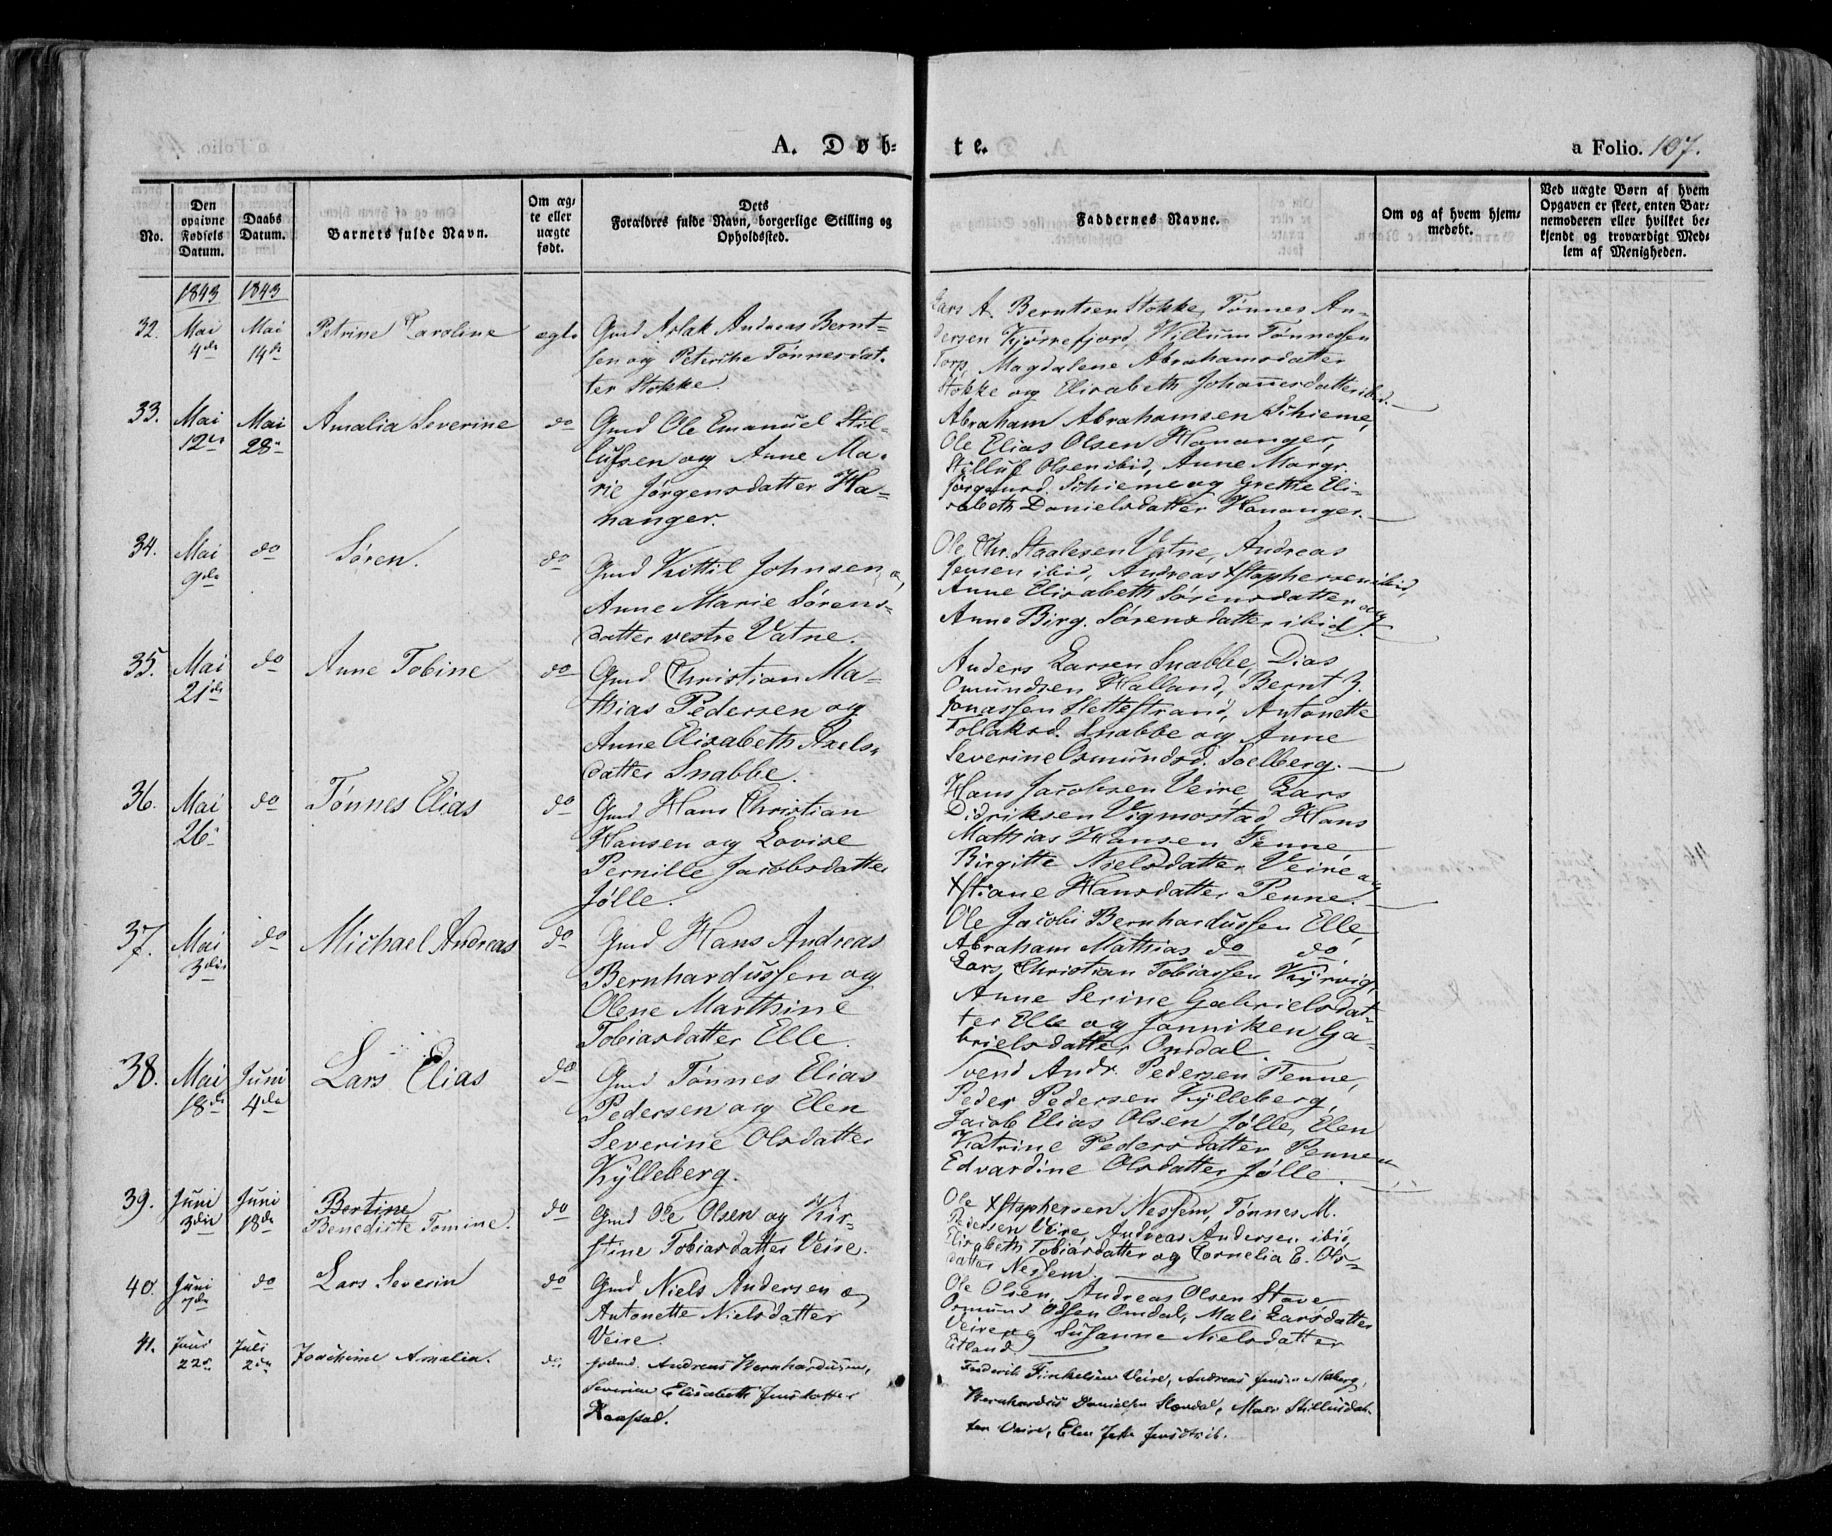 A. Døb-
te.
a Folio. 107.
No.
Den opgivne Fødsels Datum.
Daabs Datum.
Barnets fulde Navn.
Om ægte eller uægte født.
Dets Forældres fulde Navn, borgerlige Stilling og Opholdssted.
Faddernes Navne.
Om og af hvem hjemmedøbt.
Ved uægte Børn af hvem Opgaven er skeet, enten Barnemoderen eller hvilket bekjendt og troværdigt Medlem af Menigheden.
1843 1843
32. Mai 4de Mai 14de Petrine Caroline ægte
Gmd Aslak Andreas Bernt-
sen og Petrike Tønnesdat-
ter Stokke
Lars A. Berntsen Stokke, Tønnes An-
dersen Kjørrefjord, Willum Tønnessen
Torp, Magdalene Abrahamsdatter
Stokke og Elisabeth Johannesdatter ibd.
33. Mai 12te Mai 28de Amalia Severine do
Gmd Ole Emanuel Stil-
lufsen og Anne Ma-
rie Jørgensdatter Ha-
nanger.
Abraham Abrahamsen Skieme,
Ole Elias Olsen Hananger,
Stilluf Olsen ibid, Anne Margr.
Jørgensd. Skieme og Grethe Eli-
sabeth Danielsdatter Hananger.
34. Mai 9de do Søren. do
Gmd Kittil Johnsen &
Anne Marie Sørens-
datter vestre Vatne.
Ole Chr. Staalesen Vatne, Andreas
Jensen ibid, Andreas Xstophersen ibid,
Anne Elisabeth Sørensdatter og
Anne Birg. Sørensdatter ibid.
35. Mai 21de do Anne Tobine do
Gmd Christian Ma-
thias Pedersen og
Anne Elisabeth Axels-
datter Snabbe.
Anders Larsen Snabbe, Dias
Omundsen Halland, Bernt Z.
Jonassen Slettestrand, Antonette
Tollaksd. Snabbe og Anne
Severine Osmundsd. Soelberg.
36. Mai 26 do Tønnes Elias do
Gmd Hans Christian
Hansen og Lovise
Pernille Jacobsdatter
Jølle.
Hans Jacobsen Veire, Lars
Didriksen Vigmostad, Hans
Mathias Hansen Penne
Birgitte Nielsdatter Veire og
Xstiane Hansdatter Penne.
37. Mai 3die do Michael Andreas do
Gmd Hans Andreas
Bernhardussen og
Olene Marthine
Tobiasdatter Elle.
Ole Jacobi Bernhardussen Elle,
Abraham Mathias do do,
Lars Christian Tobiassen Kyrvig,
Anne Serine Gabrielsdat-
ter Elle og Janniken Ga-
brielsdatter Omdal.
38. Mai 18de Juni 4de Lars Elias do
Gmd Tønnes Elias
Pedersen og Elen
Severine Olsdatter
Kylleberg.
Svend Andr. Pedersen Penne,
Peder Pedersen Kylleberg,
Jacob Elias Olsen Jølle, Elen
Katrine Pedersdatter Penne
Edvardine Olsdatter Jølle.
39. Juni 3die Juni 18de Bertine
Benedicte Tomine. do
Gmd Ole Olsen og Kir-
stine Tobiasdatter Veire.
Ole Xstophersen Nessem, Tønnes M.
Pedersen Veire, Andreas Andersen ibid,
Elisabeth Tobiasdatter og Cornelia E. Ols-
datter Nessem.
40. Juni 7de do Lars Severin do
Gmd Niels Andersen &
Antonette Nielsdatter
Veire.
Ole Olsen, Andreas Olsen Stave
Osmund Odsen Omdal, Mali Larsdatter
Veire og Susanne Nielsdatter
Eitland.
41. Juni 22de Juli 2den Joachime Amalia. do
Andreas Bernhardusen,
Severine Elisabeth Jensdatter
Frederik Finkelsen Veire, Andreas Jensen
Bernhardus Danielsen Mali Stillufsdat-
ter Veire, Elen